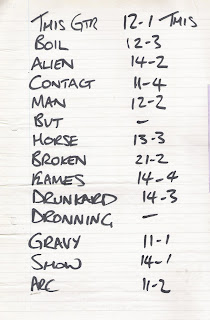 THIS GTR 12-1 THIS
BOIL 12-3
ALIEN 14-2
CONTACT 11-4
MAN 12-2
BUT -
HORSE 13-3
BROKEN 21-2
FLAMES 14-4
DRUNKARD 14-3
DRONNING -
GRAVY 11-1
SHOW 14-1
ARC 11-2